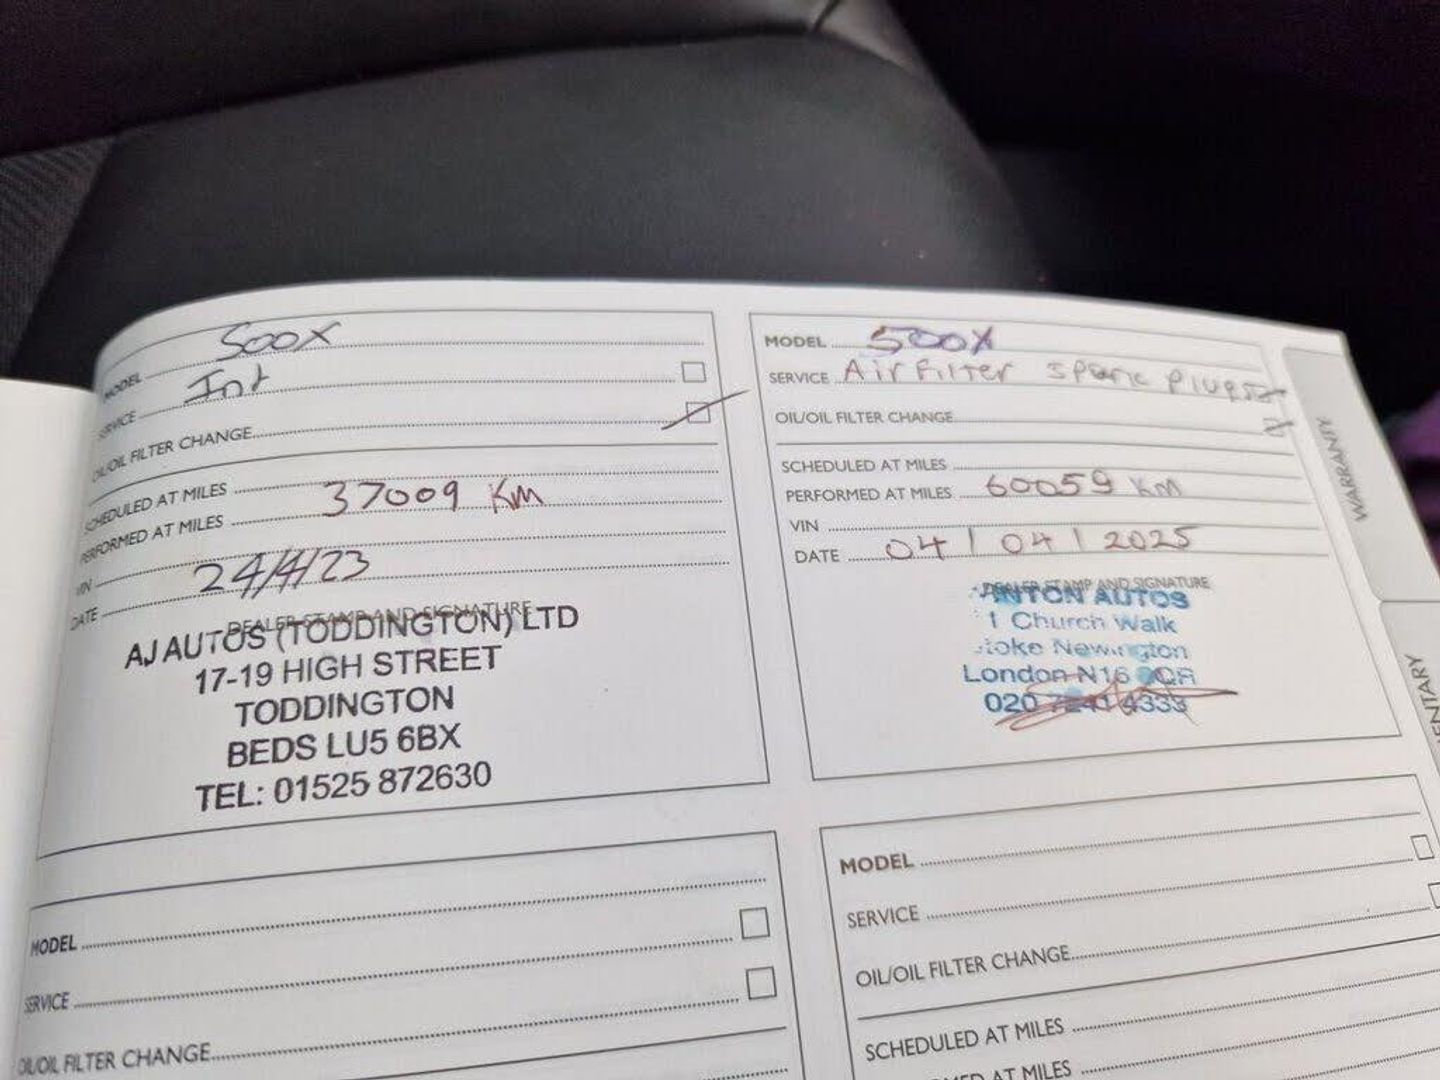 MODEL 500X
SERVICE Int
OIL/OIL FILTER CHANGE
SCHEDULED AT MILES
PERFORMED AT MILES 37009 KM
VIN
DATE 24/4/23
DEALER STAMP AND SIGNATURE
AJ AUTOS (TODDINGTON) LTD
17-19 HIGH STREET
TODDINGTON
BEDS LU5 6BX
TEL: 01525 872630
MODEL 500X
SERVICE Air Filter Spark Plugs
OIL/OIL FILTER CHANGE
SCHEDULED AT MILES
PERFORMED AT MILES 60059 KM
VIN
DATE 04/04/2025
DEALER STAMP AND SIGNATURE
ANTON AUTOS
1 Church Walk
Stoke Newington
London N16
020 7241 4333
WARRANTY
MODEL
SERVICE
OIL/OIL FILTER CHANGE
MODEL
SERVICE
OIL/OIL FILTER CHANGE
SCHEDULED AT MILES
AT MILES